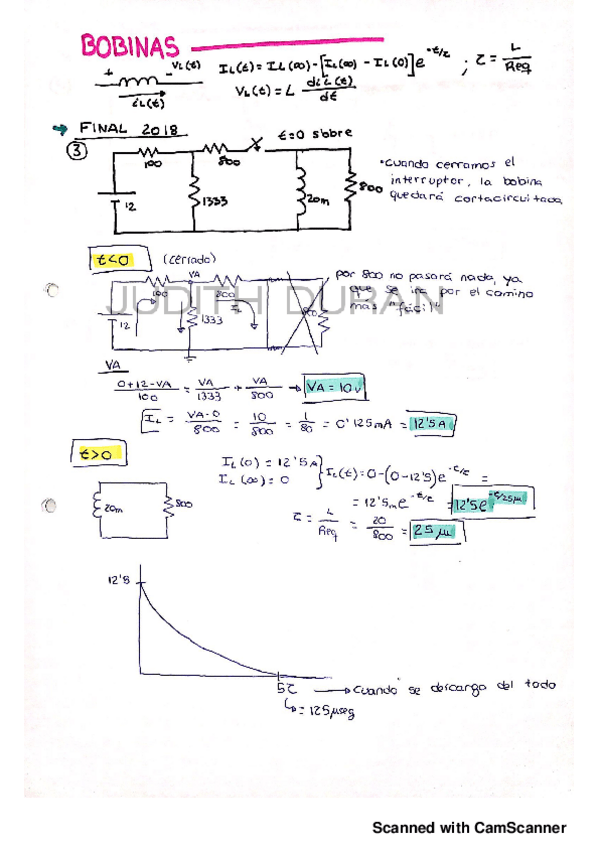 BOBINAS
+ - VL(t) iL(t)
IL(t) = IL(∞) - [IL(∞) - IL(0)] e^-t/τ ; τ = L/Req
VL(t) = L diL(t)/dt
→ FINAL 2018
③
t=0 s'obre
100 800 12 1333 20m 800
• cuando cerramos el
interruptor, la bobina
quedará cortacircuitada
t<0 (cerrado)
VA
100 800 12 1333
por 800 no pasará nada, ya
que se irá por el camino
mas "fácil"
JUDITH DURAN
VA
0+12-VA/100 = VA/1333 + VA/800 → VA = 10V
IL = VA-0/800 = 10/800 = 1/80 = 0'125mA = 12'5A
t>0
20m 800
IL(0) = 12'5A
IL(∞) = 0
} IL(t) = 0-(0-12'5)e^-t/τ =
= 12'5m e^-t/τ = 12'5e^-t/25µ
τ = L/Req = 20/800 = 25µ
12'5
5τ → Cuando se descarga del todo
↳ = 125µseg
Scanned with CamScanner